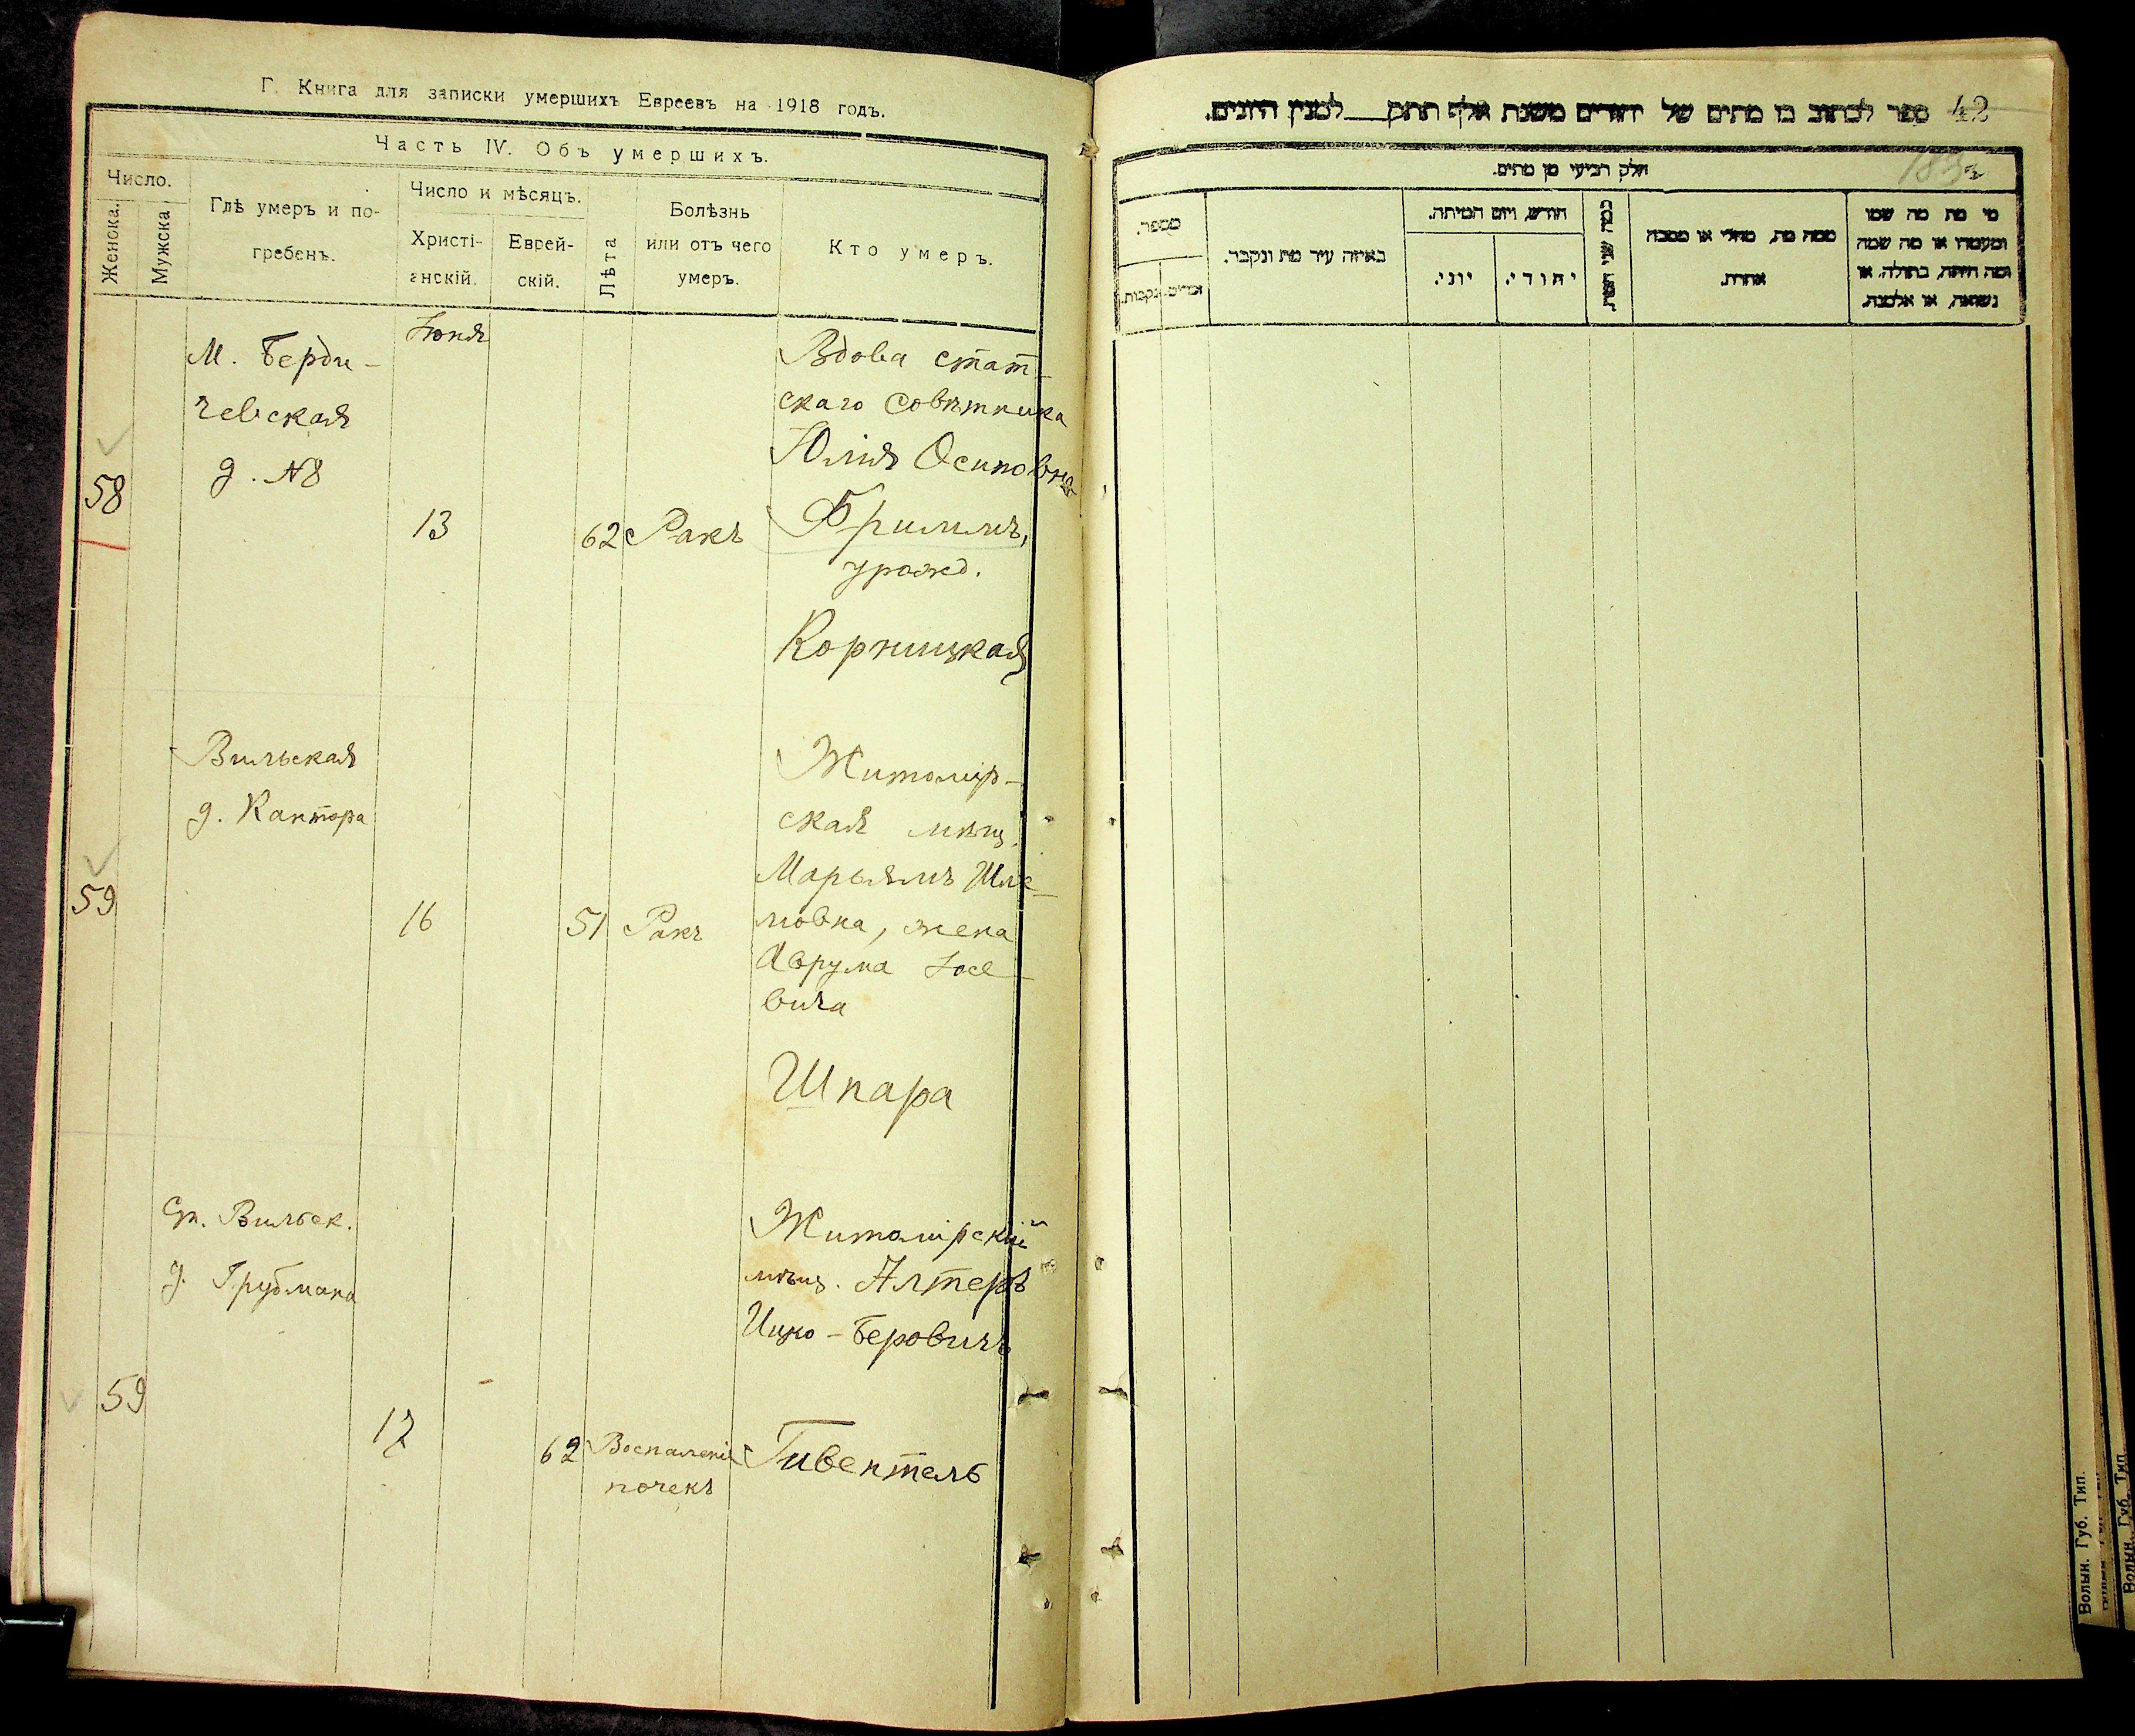 Г. Книга для записки умершихъ Евреевъ на 1918 годъ.
Часть IV. Объ умершихъ.
Число.
Женска.
Мужска
Гдѣ умеръ и по-
гребенъ.
Число и мѣсяцъ.
Христі-
анскій.
Еврей-
скій.
Лѣта
Болѣзнь
или отъ чего
умеръ.
Кто умеръ.
58
М. Берди-
чевская
д. №8
Іюня
13
62
Ракъ
Вдова стат-
скаго совѣтника
Юлія Осиповна
Бриммъ,
урожд.
Корницкая
59
Вильская
д. Кантора
16
51
Ракъ
Житомір-
ская мѣщ.
Марьямъ Шле-
мовна, жена
Аврума Іосе-
вича
Шпара
59
Ст. Вильск.
д. Грубмана
17
62
Воспаленіе
почекъ
Житомірскій
мѣщ. Алтеръ
Ицко-Беровичъ
Гивенталь
ספר לכתוב בו מתים של יהודים משנת אלף תתק__למנין היונים.
42
חלק רביעי מן מתים.
מספר.
זכרים.
נקבות.
באיזה עיר מת ונקבר.
חודש, ויום המיתה.
יוני.
יהודי.
כמה שני המת
ממה מת, מחלי או מסבה
אחרת.
מי מת מה שמו
ומעמדו או מה שמה
ומה היתה, בתולה, או
נשואה, או אלמנה.
Волын. Губ. Тип.
Волын. Губ. Тип.